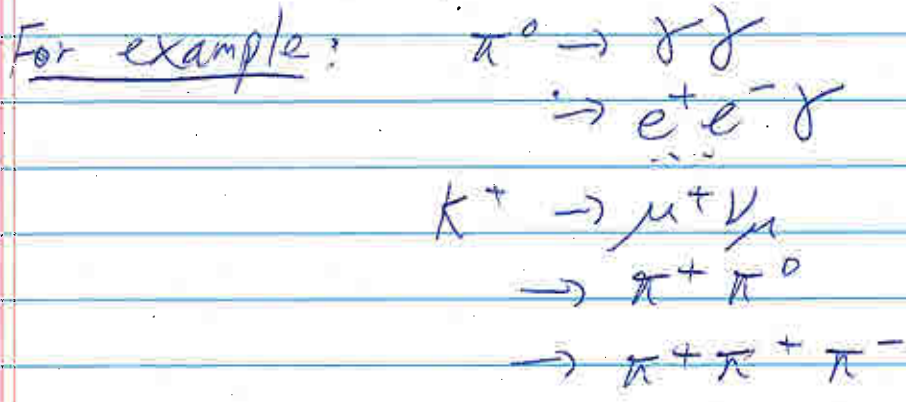 For example: π⁰ → γγ
→ e⁺e⁻γ
K⁺ → μ⁺ν_μ
→ π⁺π⁰
→ π⁺π⁺π⁻